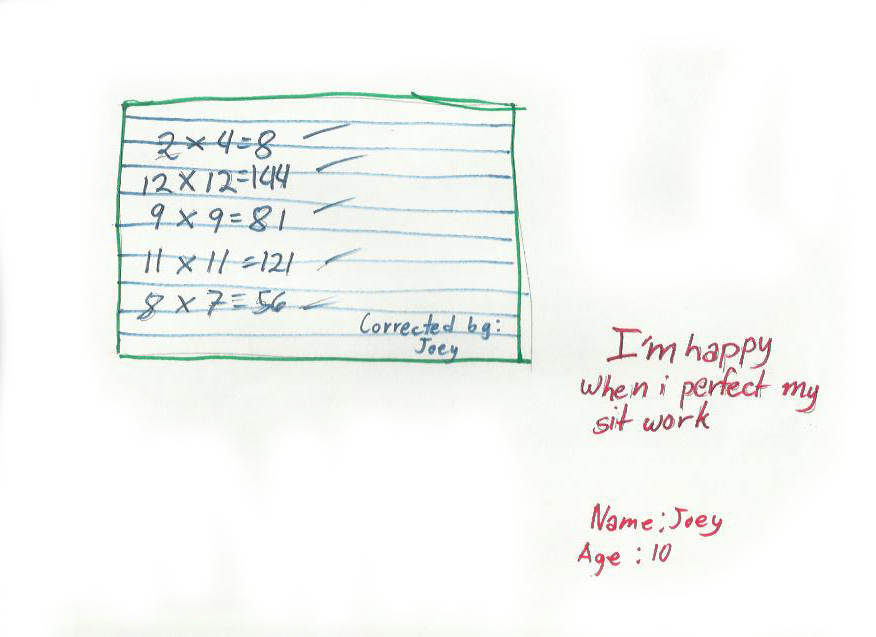 2 × 4 = 8
12 × 12 = 144
9 × 9 = 81
11 × 11 = 121
8 × 7 = 56
Corrected bg:
Joey
I'm happy
when i perfect my
sit work
Name: Joey
Age : 10